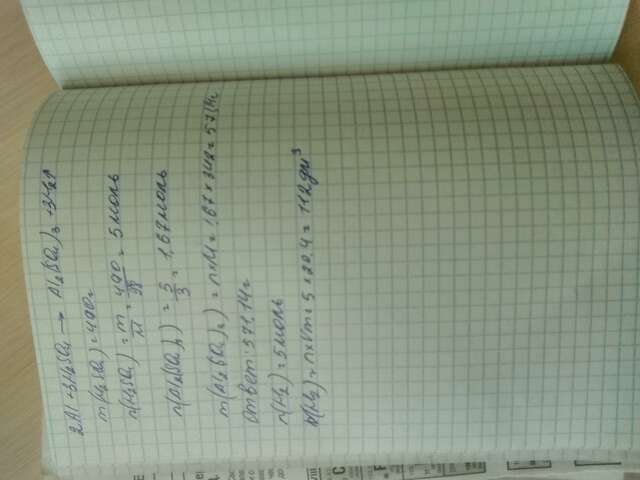 2Al + 3H₂SO₄ → Al₂(SO₄)₃ + 3H₂↑
m(H₂SO₄) = 490г
n(H₂SO₄) = m/M = 490/98 = 5 моль
n(Al₂(SO₄)₃) = 5/3 = 1,67 моль
m(Al₂(SO₄)₃) = n×M = 1,67 × 342 = 571,14г
Ответ: 571,14г
n(H₂) = 5 моль
V(H₂) = n×Vm = 5 × 22,4 = 112 дм³